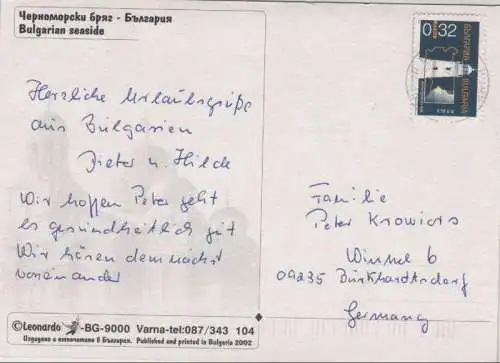 Черноморски бряг - България
Bulgarian seaside
Herzliche Urlaubsgrüße
aus Bulgarien
Dieter u. Hilde
Wir hoffen Peter geht
es gesundheitlich gut
Wir hören demnächst
voneinander
©Leonardo -BG-9000 Varna-tel:087/343 104
Издадено и отпечатано в България. Published and printed in Bulgaria 2002
0.32
БЪЛГАРИЯ BULGARIA
Familie
Peter
09235 Burkhardtsdorf
Germany